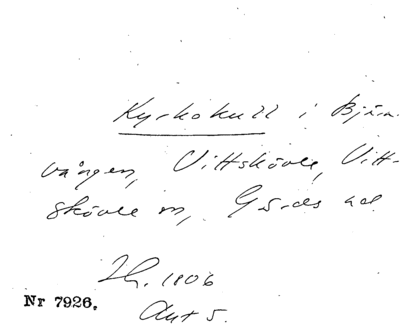 Kyrkokull i Björn-
vången, Vittskövle, Vitt-
skövle sn, Gärds hd
Lh. 1806
Akt 5.
Nr 7926.